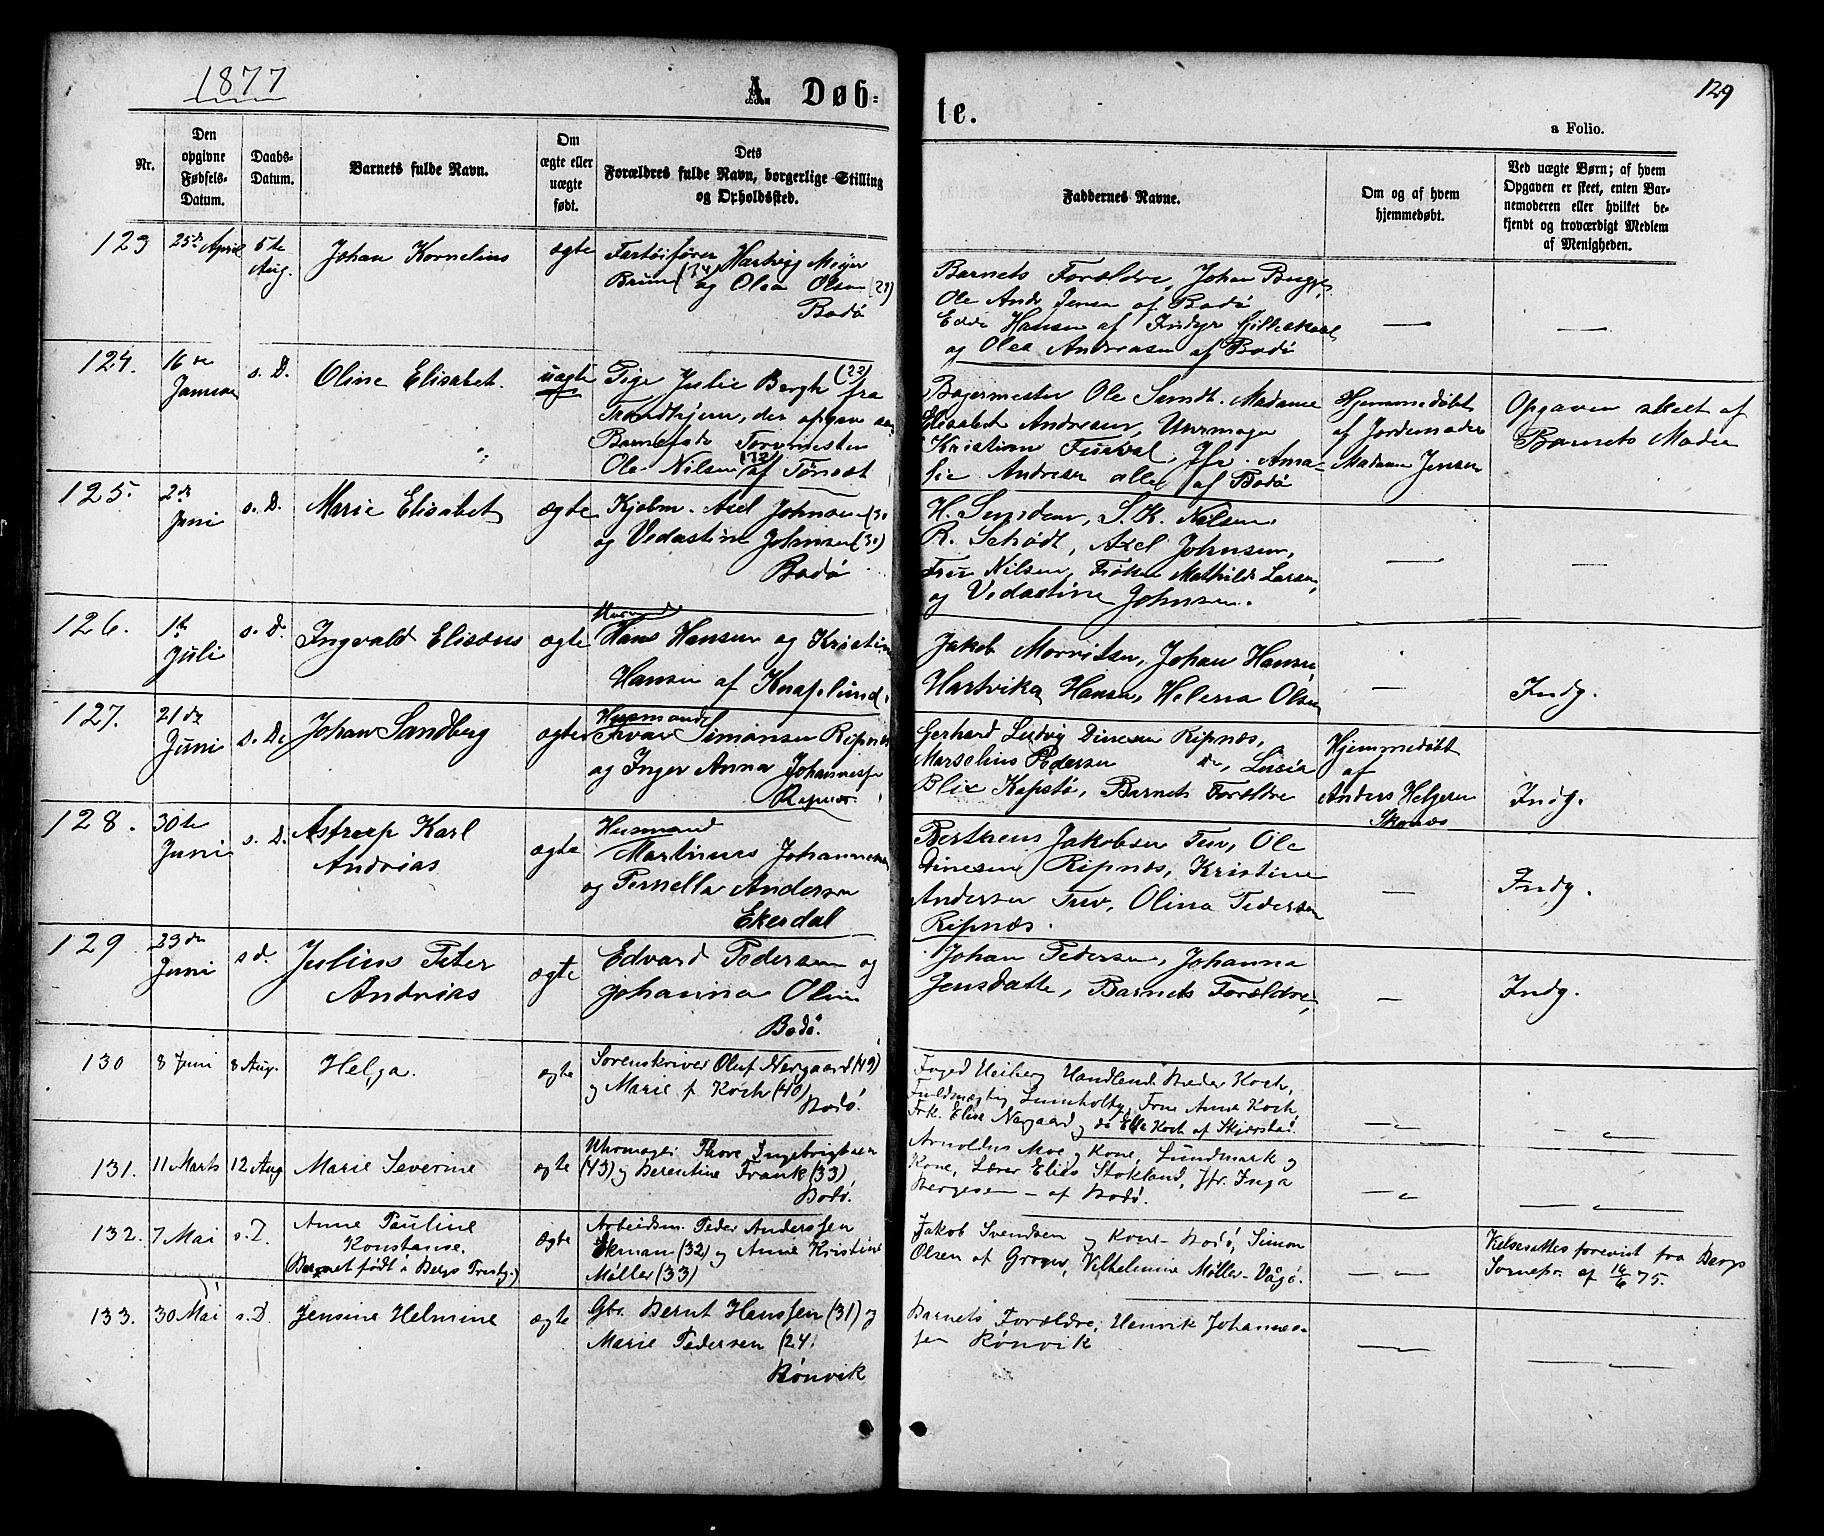 1877
A Døb=
te.
129
a Folio.
Nr.
Den
opgivne
Fødsels-
Datum.
Daabs-
Datum.
Barnets fulde Navn.
Om
ægte eller
uægte
født.
Dets
Forældres fulde Navn, borgerlige Stilling
og Opholdssted.
Faddernes Navne.
Om og af hvem
hjemmedøbt.
Ved uægte Børn; af hvem
Opgaven er skeet, enten Bar-
nemoderen eller hvilket be-
kjendt og troværdigt Medlem
af Menigheden.
123
25de April
5te
Aug.
Johan Kornelius
ægte
Fartøifører Hartvig Meyer
Bruun (34) og Olea Olsen (29)
Bodø
Barnets Forældre, Johan Bugge,
Ole Andr. Jensen af Bodø
Hansen af Indyr Gilleskaal
og Olea Andreasen af Bodø
124.
16de
Januar
s. D.
Oline Elisabet.
uægte
Pige Julie Bergh (22) fra
Trondhjem, der opgav som
Barnefader
Ole Nilsen (32) af Tønset
Bagermester Ole Sundt. Madame
Elisabet Andreasen, Uurmager
Kristian Jfr. Ama-
lie Andresen alle af Bodø
Hjemmedøbt
af Jordemoder
Madam Jensen
Opgaven skeet af
Barnets Moder
125.
2de
Juni
s. D.
Marie Elisabet
ægte
Kjøbm. Axel Johnsen (30
og Vedastine Johnsen (30)
Bodø
H. S. K. Nilsen,
R. Schødt, Axel Johnsen,
Fru Nilsen, Frøken Mathilde Larsen,
og Vedastine Johnsen.
126.
1te
Juli
s. D.
Ingvald Elisæus
ægte
Husmand
Hans Hansen og Kristine
Hansen af Knaplund.
Jakob Morritsen, Johan Hansen
Hartvika Hansen, Helena Olsen
Indg.
127.
21de
Juni
s. D.
Johan Sandberg
ægte
Husmand
Ivar Simonsen Ripnæs
og Inger Anna Johannesen
Ripnæs.
Gerhard Ludvig Dinesen Ripnæs,
Marselius Pedersen do, Lusia
Blix Kopstø, Barnets Forældre
Hjemmedøbt
af
Anders Helgesen
Skonæs
Indg.
128.
30te
Juni
s. D.
Astrup Karl
Andrias
ægte
Husmand
Martinus Johannesen
og Pernella Andersen
Ekerdal
Bertheus Jakobsen Tuv, Ole
Dinesen Ripnæs, Kristine
Andersen Tuv, Olina Pedersen
Ripnæs.
Indg.
129
23de
Juni
s d.
Julius Peter
Andrias
ægte
Edvard Pedersen og
Johanna Olsen
Bodø.
Johan Pedersen, Johanna
Jensdatte, Barnets Forældre,
Indg.
130
8 Juni
8 Aug.
Helga.
ægte
Sorenskriver Oluf Norgaard (49)
og Marie f. Koch (40)
Bodø.
Foged Weiberg Handlende Peder Koch,
Fuldmægtig Lumholtz, Frue Anne Koch,
Frk. Elise Norgaard og do Ella Koch af Skjerstad.
131.
11 Marts
12 Aug
Marie Severine
ægte
Uhrmager Thore Ingebrigtsen
(43) og Berentine Frank (33)
Bodø.
Arnoldus Moe og Kone, Lundmark og
Kone, Lærer Elias Stokland, Jfr. Inga
Børgesen - af Bodø.
132.
7 Mai
s. D.
Anne Pauline
Konstanse.
(Barnet født i Bergs Prestg.)
ægte
Arbeidsm. Peder Anderssen
Ekman (32) og Anne Kristine
Møller (33)
Jakob Svendsen og Kone - Bodø, Simon
Olsen af Grover, Vilhelmine Møller - Vågø.
Vielsesattest forevist fra Bergs
Sornepr. af 14/6 75.
133.
30 Mai
s. D.
Jensine Helmine
ægte
Gbr. Bernt Hanssen (31) og
Marie Pedersen (24)
Rønvik
Barnets Forældre, Henrik Johannes-
sen Rønvik